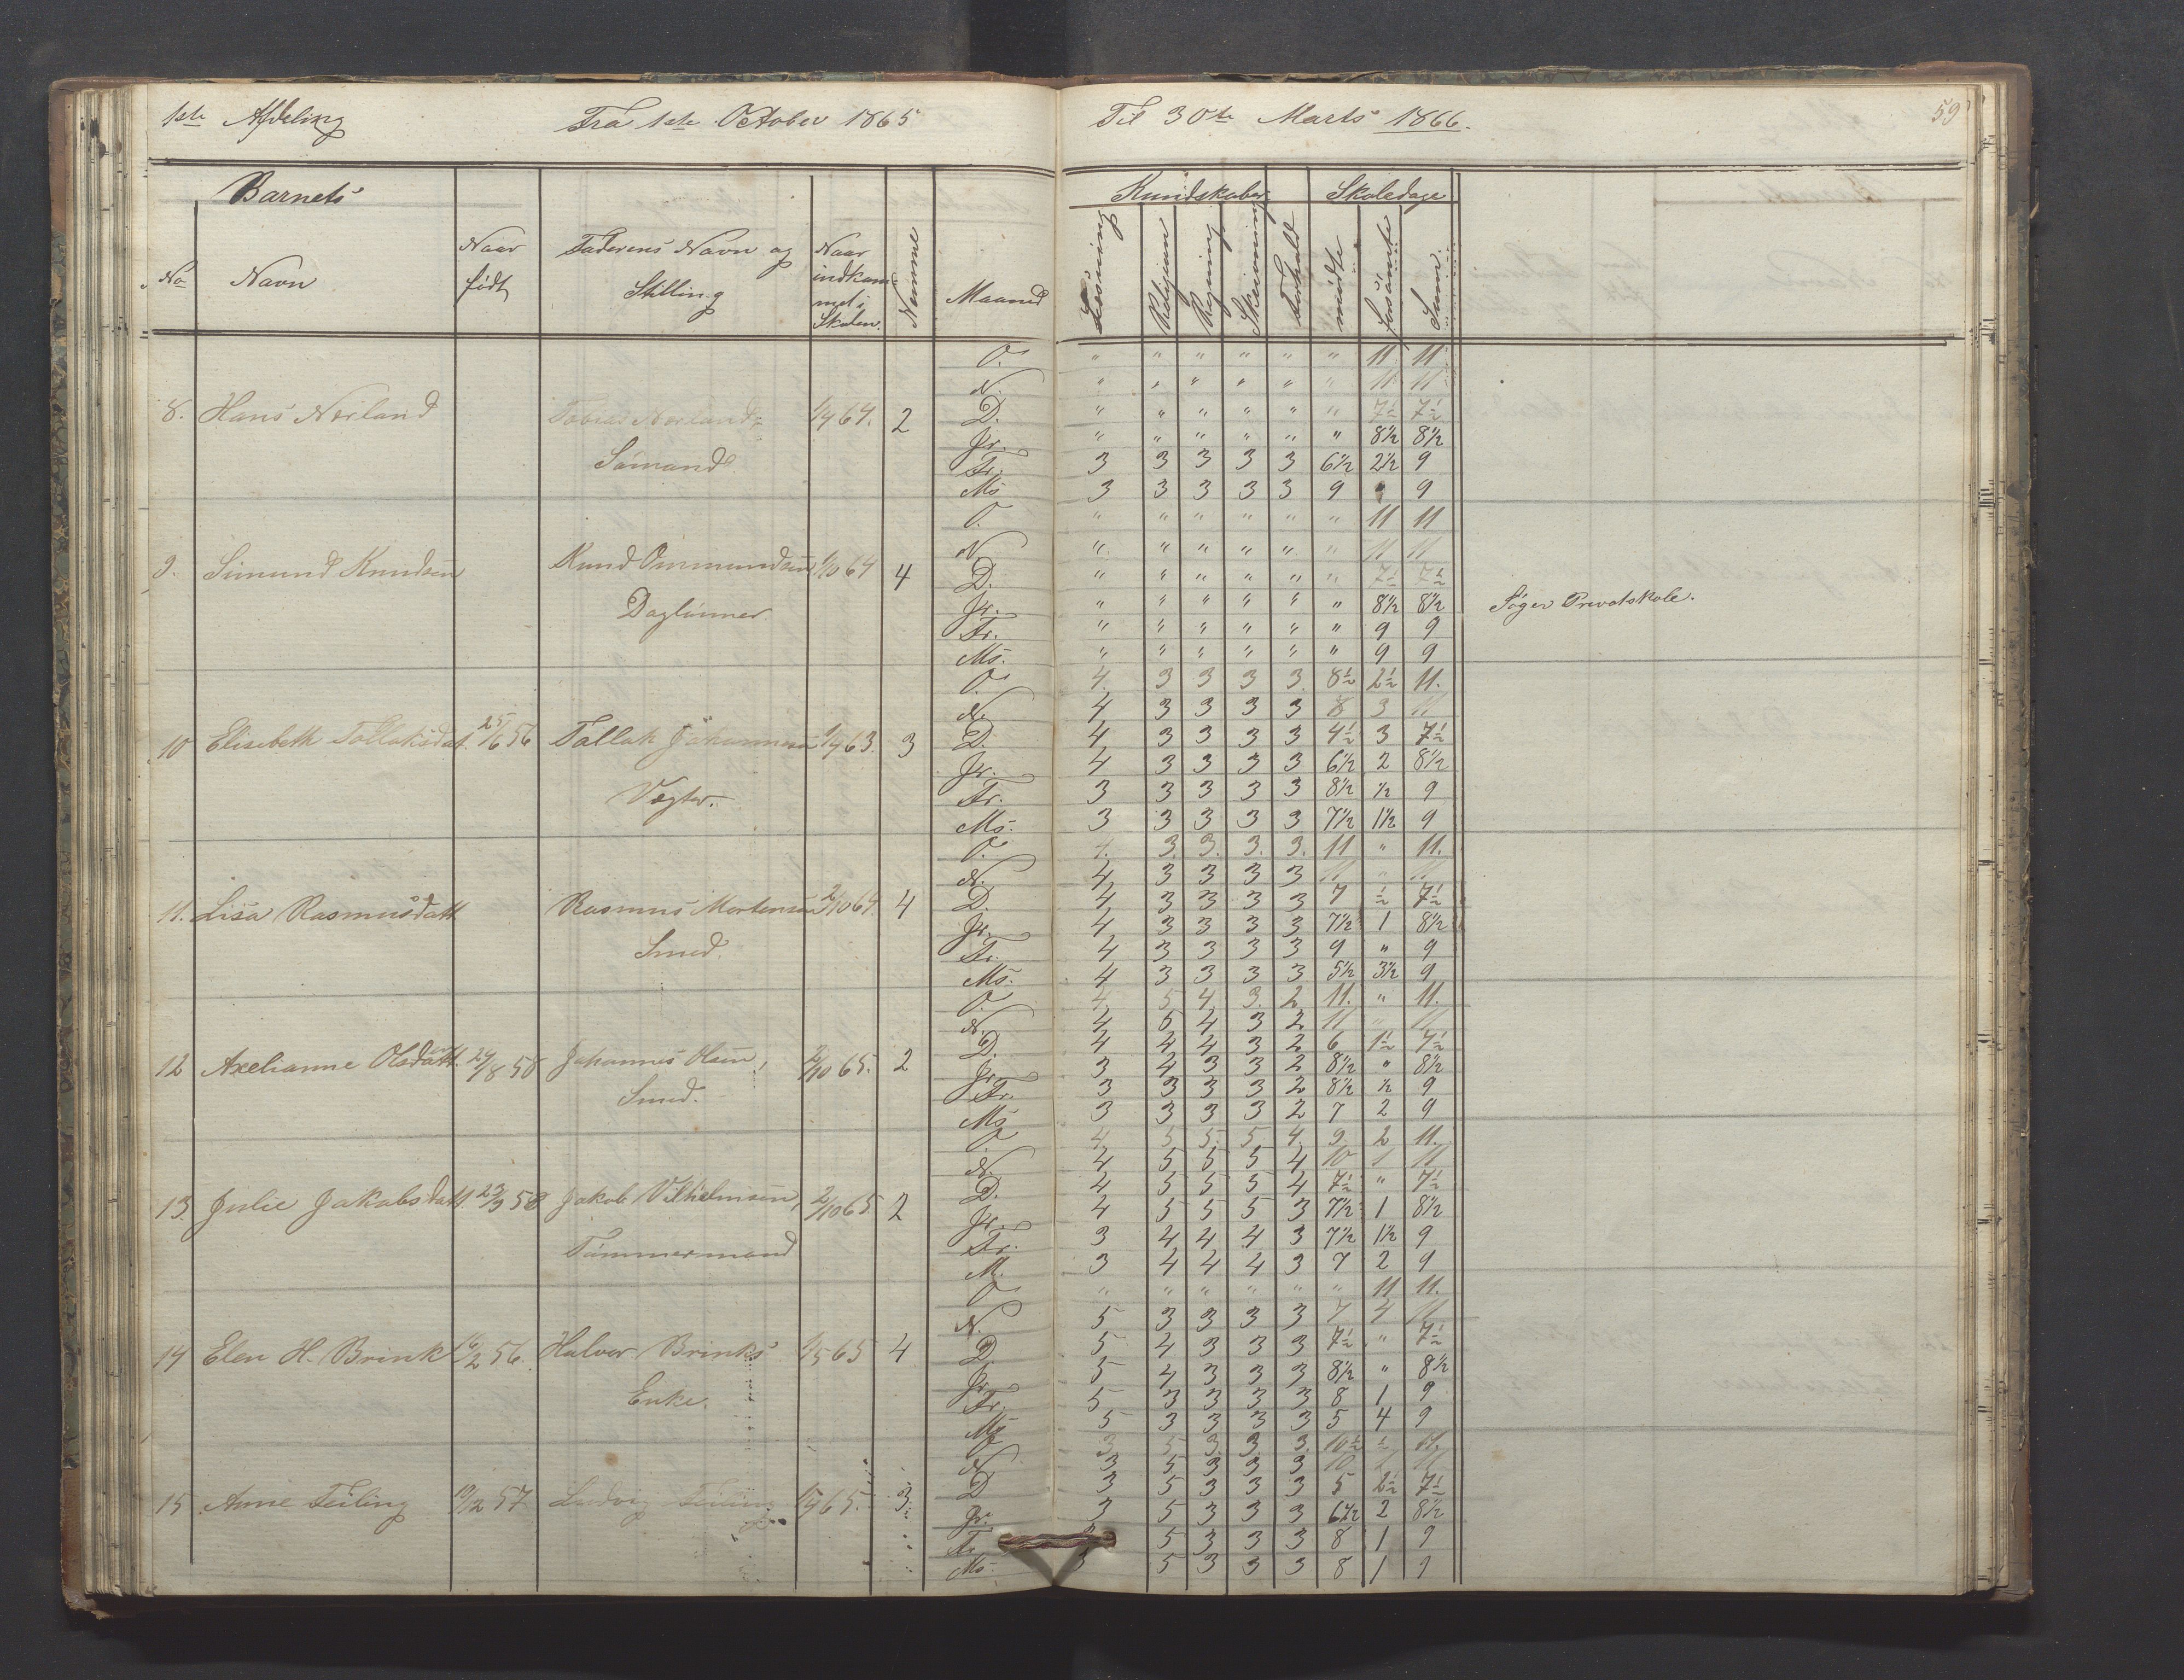 1ste Afdeling Fra 1ste October 1865 Til 30te Marts 1866. 59
Barnets Kundskaber Skoledage
No Navn Naar født Faderens Navn og Stilling Naar indkommet i Skolen. Nemme Maaned Læsning Religion Regning Skrivning Forhold mødte forsømte Sum
O. " " " " " " 11 11
N. " " " " " " 11 11
8. Hans Nerland Tobias Nerland 64. 2 D. " " " " " " 7½ 7½
Jr. " " " " " " 8½ 8½
Sømand Fr. 3 3 3 3 3 6½ 2½ 9
Ms 3 3 3 3 3 9 " 9
O. " " " " " " 11 11
N. " " " " " " 11 11
9. Simund Knudsen Knud Ommundsen 1/10 64 4 D. " " " " " " 7½ 7½
Daglønner. Jr. " " " " " " 8½ 8½ Søger Privatskole.
Fr. " " " " " " 9 9
Ms. " " " " " " 9 9
O. 4. 3 3 3 3. 8½ 2½ 11.
N. 4 3 3 3 3 8 3 11
10 Elisebeth Tollaksdat. 25/6 56 Tollak Johannesen 63. 3 D. 4 3 3 3 3 4½ 3 7½
Jr. 4 3 3 3 3 6½ 2 8½
Vægter. Fr. 3 3 3 3 3 8½ ½ 9
Ms. 3 3 3 3 3 7½ 1½ 9
O. 4. 3 3. 3. 3. 11 " 11.
N. 4 3 3 3 3 11 " 11
11. Lisa Rasmusdatt Rasmus Mortensen 2/10 64. 4 D. 4 3 3 3 3 7 ½ 7½
Jr. 4 3 3 3 3 7½ 1 8½
Smed. Fr. 4 3 3 3 3 9 " 9
Ms. 4 3 3 3 3 5½ 3½ 9
O. 4. 5 4 3. 2 11. " 11.
N. 4 5 4 3 2 11 " 11
12 Axelianne Olsdatt. 24/8 58 Johannes Olsen, 2/10 65. 2 D. 4 4 4 3 2 6 1½ 7½
Jr. 3 4 3 3 2 8½ " 8½
Smed. Fr. 3 3 3 3 2 8½ ½ 9
Ms 3 3 3 3 2 7 2 9
O. 4. 5 5. 5 4. 9. 2 11.
N. 4 5 5 5 4 10 1 11
13. Julie Jakobsdatt. 23/9 58 Jakob Vilhelmsen, 2/10 65 2 D. 4 5 5 5 4 7½ " 7½
Jr. 4 5 5 5 3 7½ 1 8½
Tømmermand Fr. 3 4 4 4 3 7½ 1½ 9
M. 3 4 4 4 3 7 2 9
O " " " " " " 11 11.
N. 5 3 3 3 3 7 4 11
14 Elen H. Brink 56. Halvor Brinks 1/5 65 4 D. 5 4 3 3 3 7½ " 7½
Jr. 5 4 3 3 3 8½ " 8½
Enke. Fr. 5 3 3 3 3 8 1 9
Ms 5 3 3 3 3 5 4 9
O 3 5 3. 3. 3. 10½ ½ 11.
N. 3 5 3 3 3 10 1 11
15 Anne Teiling 19/12 57 Ludvig Teiling 65. 3 D 3 5 3 3 3 5 2½ 7½
Jr. 3 5 3 3 3 6½ 2 8½
Fr 5 3 3 3 8 1 9
Ms 3 5 3 3 3 8 1 9